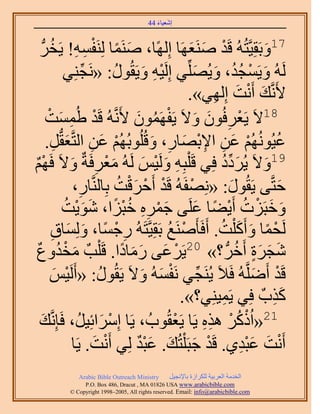 إشعياء 44
17وَبَقِيَّتُهُ قَدْ صَنَعَهَا إِلهًا، صَنَمًا لِنَفْسِهِ! يَخُرُّ
لَهُ وَيَسْجُدُ، وَيُصَلِّي إِلَيْهِ وَيَقُولُ: «نَجِّنِي
لأَنَّكَ أَنْتَ إِلهِي».
18لاَ يَعْرِفُونَ وَلاَ يَفْهَمُونَ لأَنَّهُ قَدْ طُمِسَتْ
عُيُونُهُمْ عَنِ الإِبْصَارِ، وَقُلُوبُهُمْ عَنِ التَّعَقُّلِ.
19وَلاَ يُرَدِّدُ فِي قَلْبِهِ وَلَيْسَ لَهُ مَعْرِفَةٌ وَلاَ فَهْمٌ
حَتَّى يَقُولَ: «نِصْفَهُ قَدْ أَحْرَقْتُ بِالنَّارِ،
وَخَبَزْتُ أَيْضًا عَلَى جَمْرِهِ خُبْزًا، شَوَيْتُ
لَحْمًا وَأَكَلْتُ. أَفَأَصْنَعُ بَقِيَّتَهُ رِجْسًا، وَلِسَاقِ
شَجَرَةٍ أَخُرُّ؟» 20يَرْعَى رَمَادًا. قَلْبٌ مَخْدُوعٌ
قَدْ أَضَلَّهُ فَلاَ يُنَجِّي نَفْسَهُ وَلاَ يَقُولُ: «أَلَيْسَ
كَذِبٌ فِي يَمِينِي؟».
21«اُذْكُرْ هذِهِ يَا يَعْقُوبُ، يَا إِسْرَائِيلُ، فَإِنَّكَ
أَنْتَ عَبْدِي. قَدْ جَبَلْتُكَ. عَبْدٌ لِي أَنْتَ. يَا
Arabic Bible Outreach Ministry الخدمة العربية للكرازة بالإنجيل
P.O. Box 486, Dracut , MA 01826 USA www.arabicbible.com
© Copyright 1998–2005, All rights reserved. Email: info@arabicbible.com